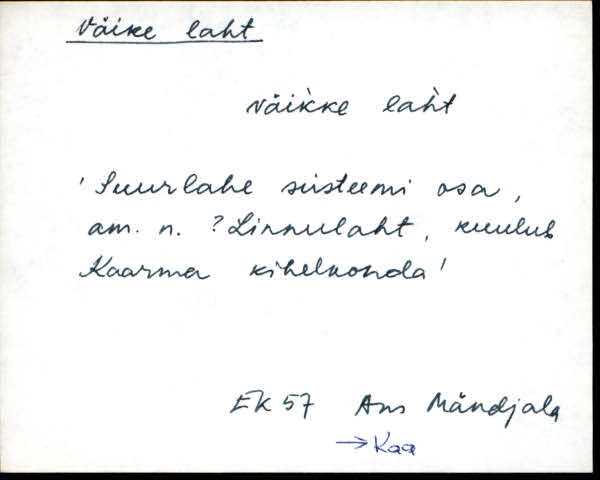 Väike laht
väi`kke lah`t
'Suurlahe süsteemi osa,
am. n. ? Linnulaht, kuulub
Kaarma kihelkonda'
EK 57 Ans Mändjala
→ Kaa